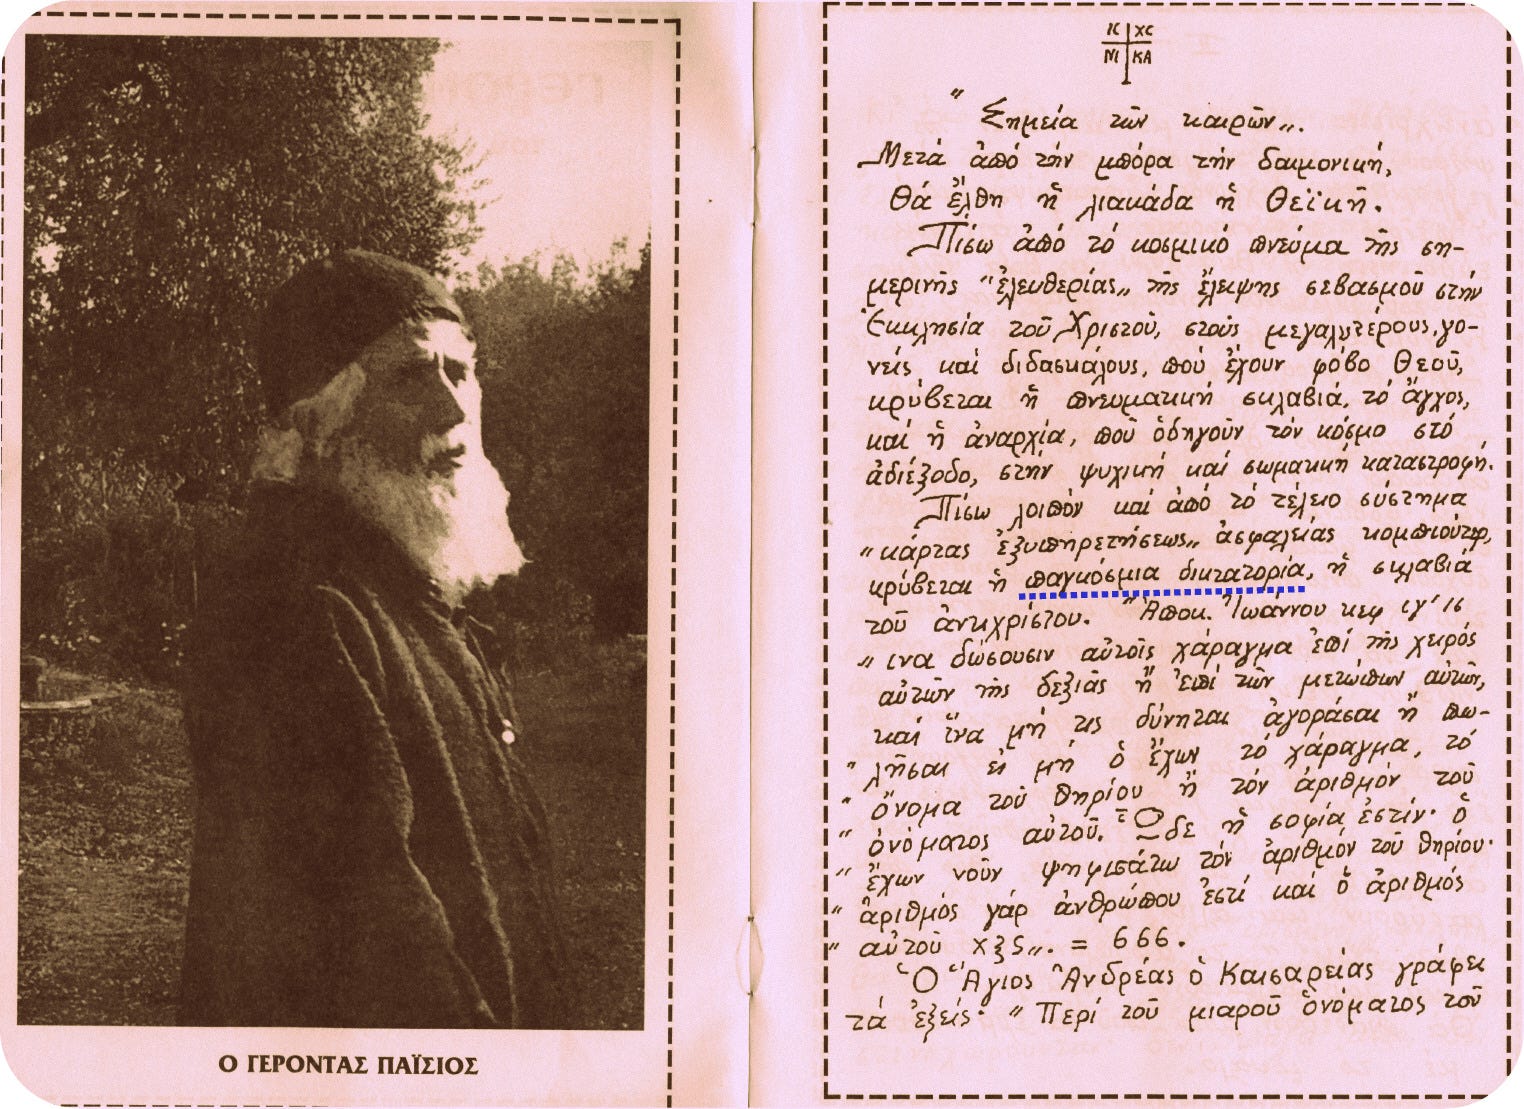 Ο ΓΕΡΟΝΤΑΣ ΠΑΪΣΙΟΣ
IC XC
NI KA
"Σημεία τῶν καιρῶν„.
Μετά ἀπό τήν μπόρα τήν δαιμονική,
Θά ἔλθη ἡ λιακάδα ἡ Θεϊκή.
Πίσω ἀπό τό κοσμικό πνεῦμα τῆς ση-
μερινῆς "ἐλευθερίας„ τῆς ἔλειψης σεβασμοῦ στήν
Ἐκκλησία τοῦ Χριστοῦ, στούς μεγαλυτέρους, γο-
νεῖς καί διδασκάλους, πού ἔχουν φόβο Θεοῦ,
κρύβεται ἡ πνευματική σκλαβιά, τό ἄγχος,
καί ἡ ἀναρχία, πού ὁδηγοῦν τόν κόσμο στό
ἀδιέξοδο, στήν ψυχική καί σωματική καταστροφή.
Πίσω λοιπόν καί ἀπό τό τέλειο σύστημα
"κάρτας ἐξυπηρετήσεως„ ἀσφαλείας κομπιοῦτερ,
κρύβεται ἡ παγκόσμια δικτατορία, ἡ σκλαβιά
τοῦ ἀντιχρίστου. "Ἀποκ. Ἰωάννου κεφ ιγ' 16
"ινα δώσουσιν αὐτοῖς χάραγμα ἐπί τῆς χειρός
αὐτῶν τῆς δεξιᾶς ἤ ἐπί τῶν μετώπων αὐτῶν,
καί ἵνα μή τις δύνηται ἀγοράσαι ἤ πω-
"λῆσαι εἰ μή ὁ ἔχων τό χάραγμα, τό
"ὄνομα τοῦ θηρίου ἤ τόν ἀριθμόν τοῦ
"ὀνόματος αὐτοῦ. Ὧδε ἡ σοφία ἐστίν· ὁ
"ἔχων νοῦν ψηφισάτω τόν ἀριθμόν τοῦ θηρίου·
"ἀριθμός γάρ ἀνθρώπου ἐστί καί ὁ ἀριθμός
"αὐτοῦ χξς„. = 666.
Ὁ Ἅγιος Ἀνδρέας ὁ Καισαρείας γράφει
τά ἑξεῖς· "Περί τοῦ μιαροῦ ὀνόματος τοῦ